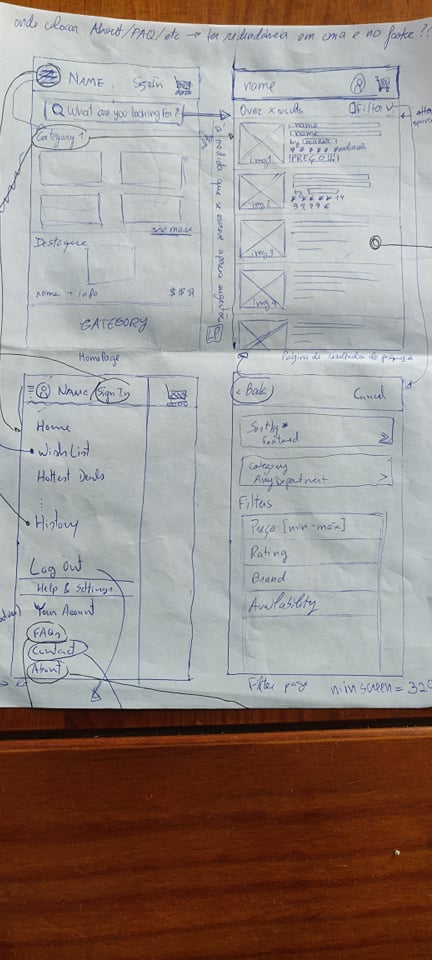 onde colocar About/FAQ/etc → ter redundância em cima e no footer ??
NAME
Sign In
What are you looking for?
Category 1
see more
Destaque
nome + info
$$$
CATEGORY
Homepage
à medida que se escreve
name
Over x results
Filter
name
name
by maker
PREÇO !!!
img 1
by
img 2
img 3
img 4
Página de resultados da pesquisa
NAME
Sign In
Home
Wish List
Hottest Deals
History
Log out
Help & Settings
Your Account
FAQs
Contact
About
< Back
Cancel
Sort by
Featured
Category
Any Department >
Filters
Preço [min-max]
Rating
Brand
Availability
Filter page
min screen = 320